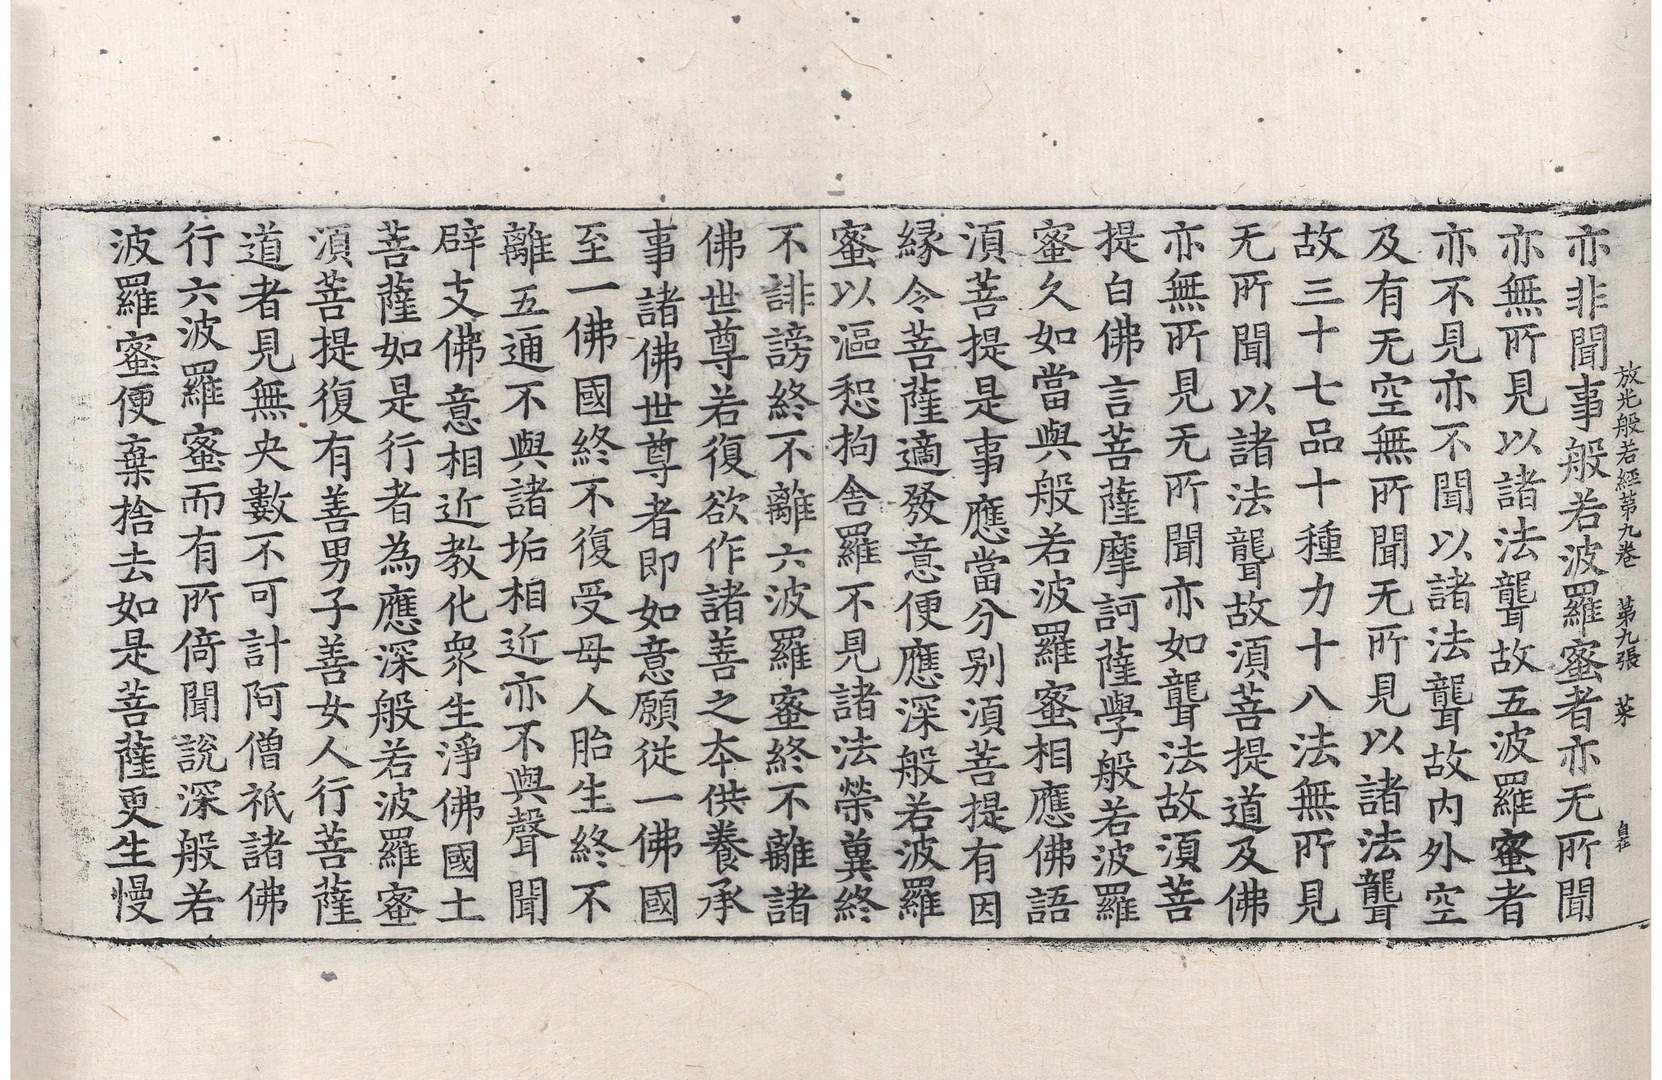 放光般若經第九卷　第九張　菜
亦非聞事般若波羅蜜者亦无所聞
亦無所見以諸法聾故五波羅蜜者
亦不見亦不聞以諸法聾故内外空
及有无空無所聞无所見以諸法聾
故三十七品十種力十八法無所見
无所聞以諸法聾故湏菩提道及佛
亦無所見无所聞亦如聾法故湏菩
提白佛言菩薩摩訶薩學般若波羅
蜜久如當與般若波羅蜜相應佛語
湏菩提是事應當分别湏菩提有因
縁令菩薩適發意便應深般若波羅
蜜以漚惒拘舍羅不見諸法榮兾終
不誹謗終不離六波羅蜜終不離諸
佛世尊若復欲作諸善之夲供養承
事諸佛世尊者即如意願従一佛國
至一佛國終不復受母人胎生終不
離五通不與諸垢相近亦不與聲聞
辟支佛意相近教化衆生淨佛國土
菩薩如是行者為應深般若波羅蜜
湏菩提復有善男子善女人行菩薩
道者見無央數不可計阿僧祇諸佛
行六波羅蜜而有所倚聞説深般若
波羅蜜便棄捨去如是菩薩更生慢